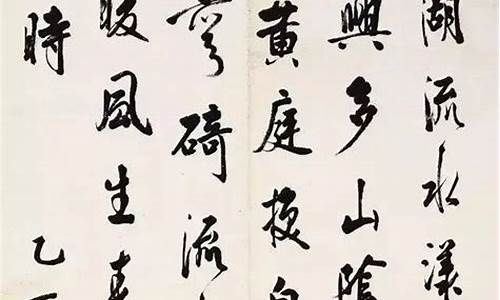 湖流水漾
興多山陰
黄庭換白
碕流
暖風生
時 乙